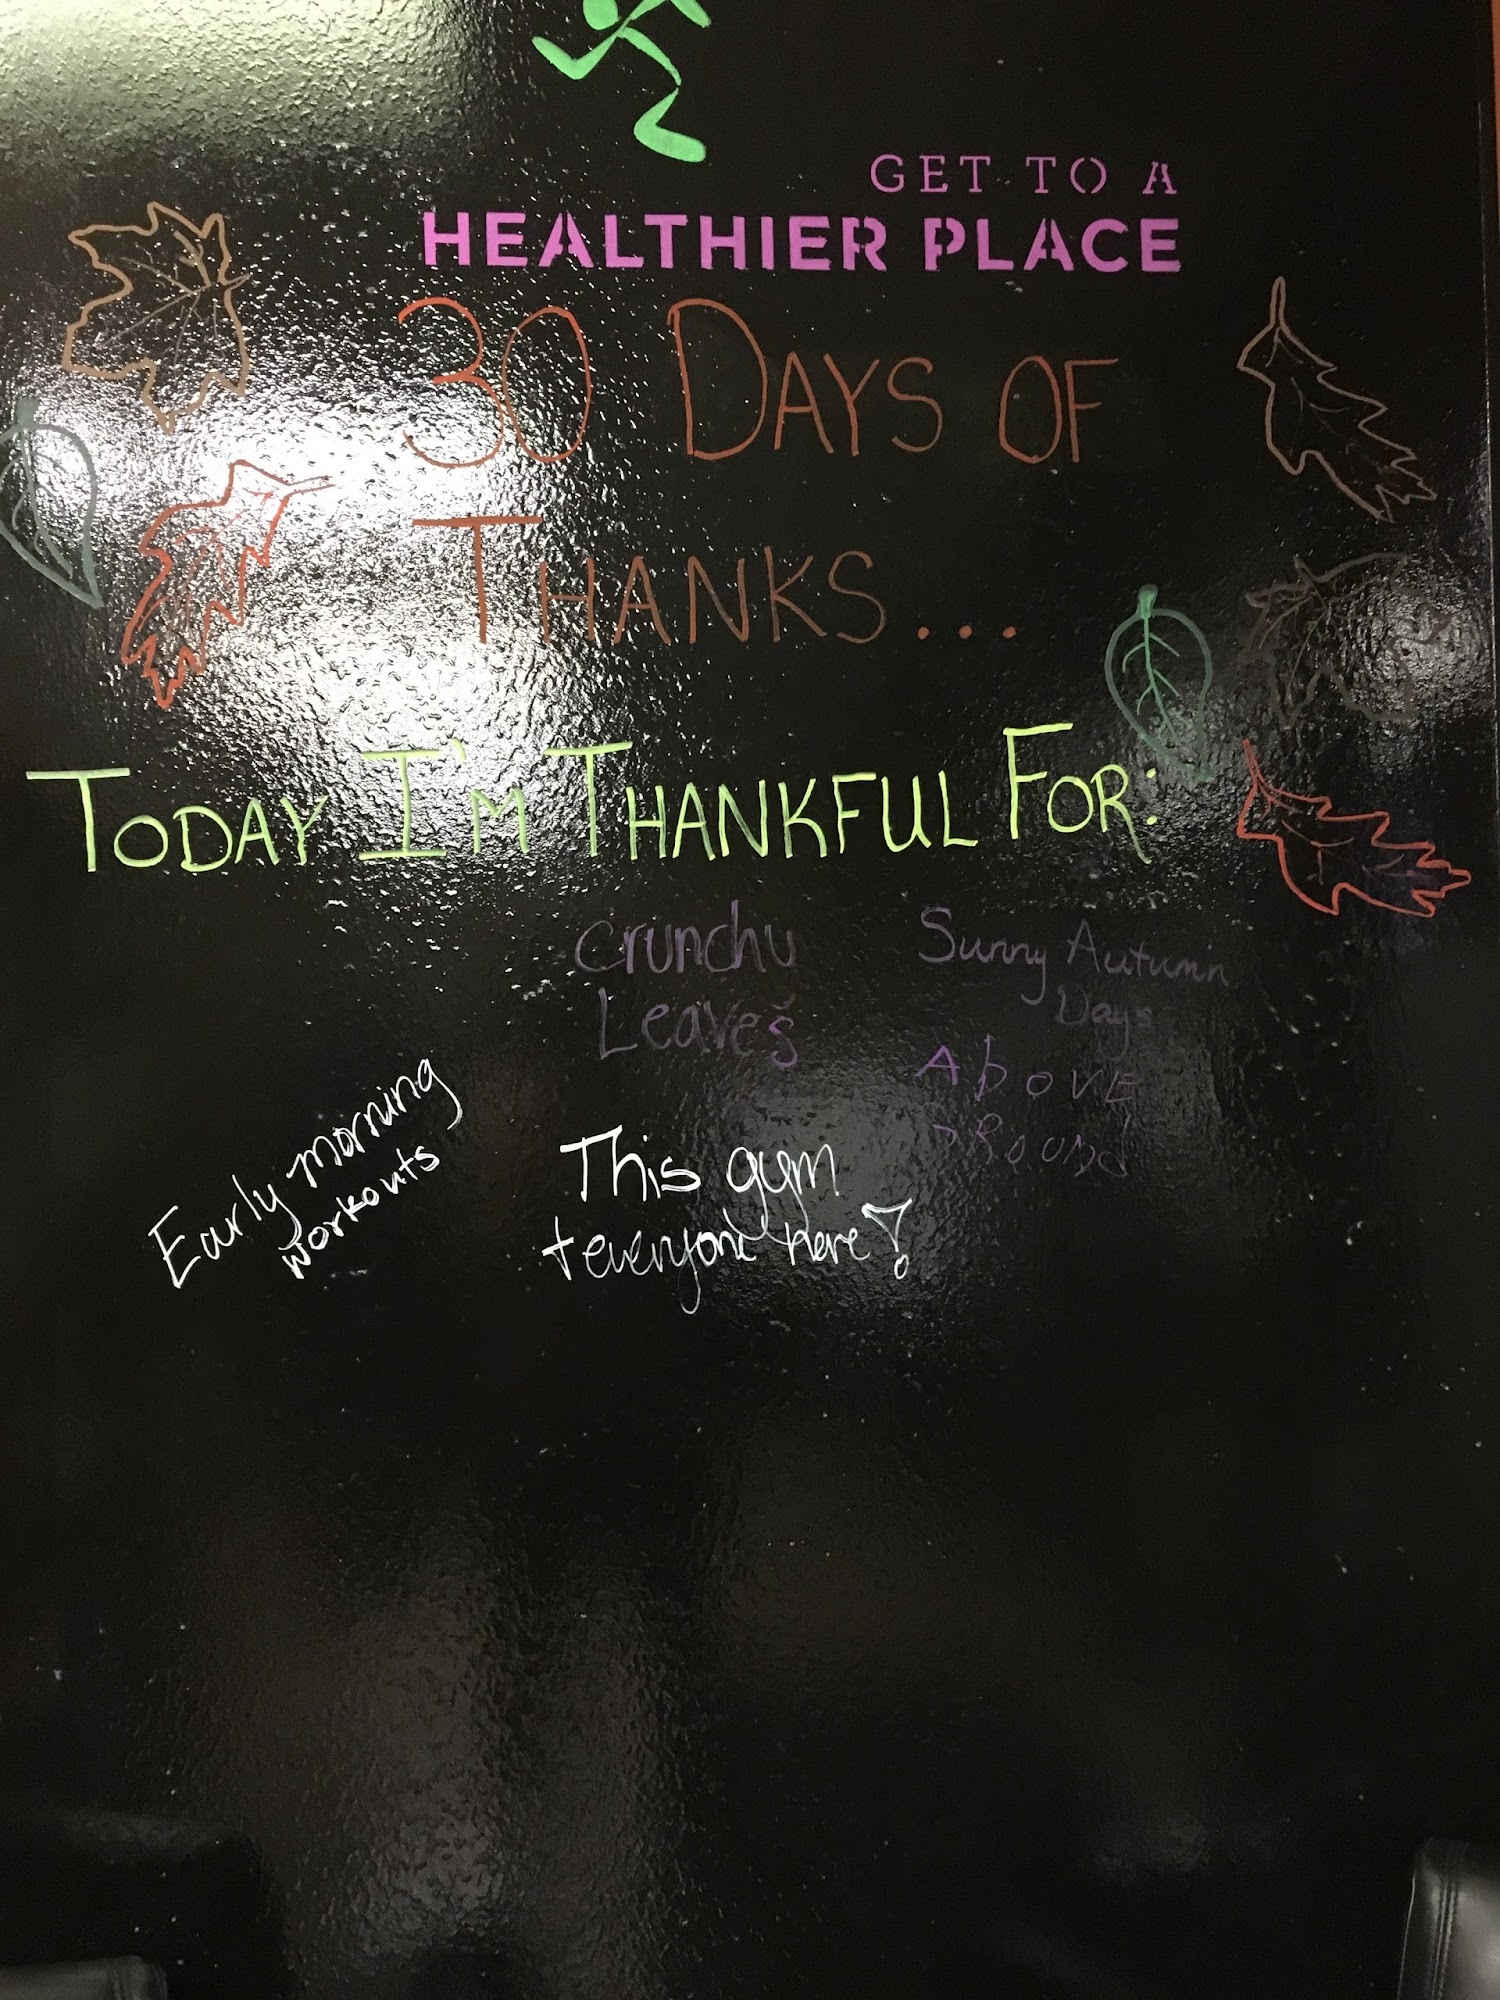 GET TO A
HEALTHIER PLACE
30 DAYS OF
THANKS...
TODAY I'M THANKFUL FOR:
Crunchy
Leaves
Sunny Autumn
Days
Above
GRound
Early morning
workouts
This gym
+ everyone here!